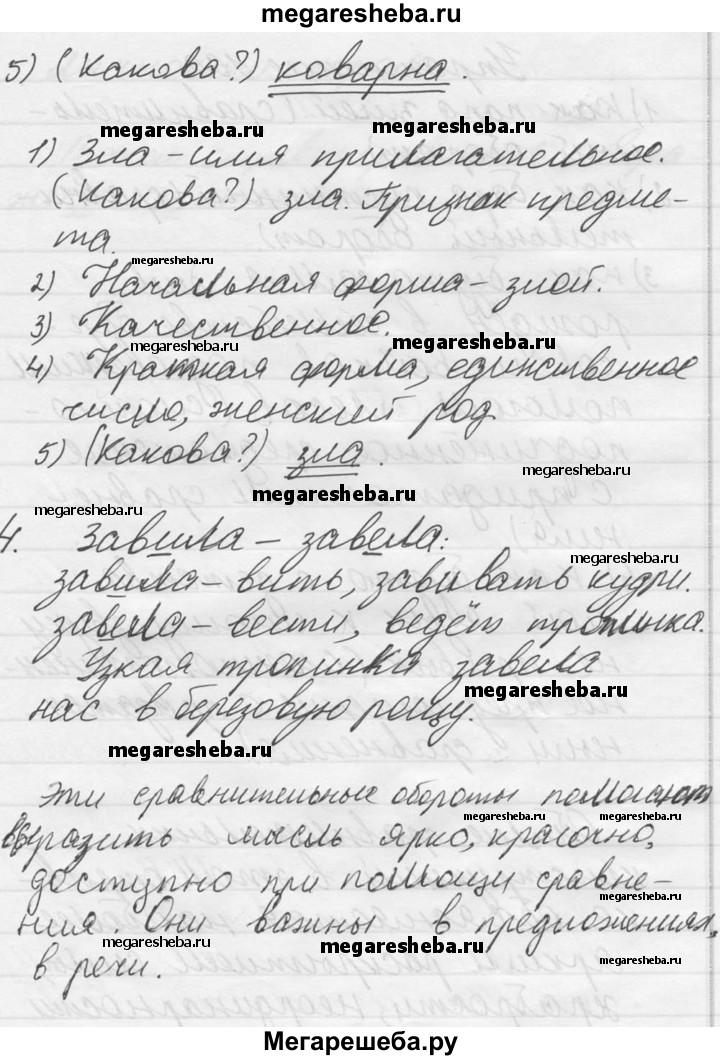 megaresheba.ru
5) (Какова?) коварна.
megaresheba.ru
megaresheba.ru
1) Зла - имя прилагательное.
(Какова?) зла. Признак предме-
та.
megaresheba.ru
megaresheba.ru
2) Начальная форма - злой.
3) Качественное.
megaresheba.ru
megaresheba.ru
4) Краткая форма, единственное
число, женский род
5) (Какова?) зла.
megaresheba.ru
megaresheba.ru
megaresheba.ru
4. Завила - завела:
megaresheba.ru
завила - вить, завивать кудри.
завела - вести, ведёт тропинка.
Узкая тропинка завела
megaresheba.ru
нас в березовую рощу.
megaresheba.ru
Эти сравнительные обороты помогают
megaresheba.ru
выразить мысль ярко, красочно,
доступно при помощи сравне-
ния. Они важны в предложениях,
megaresheba.ru
megaresheba.ru
megaresheba.ru
в речи.
Мегарешеба.ру